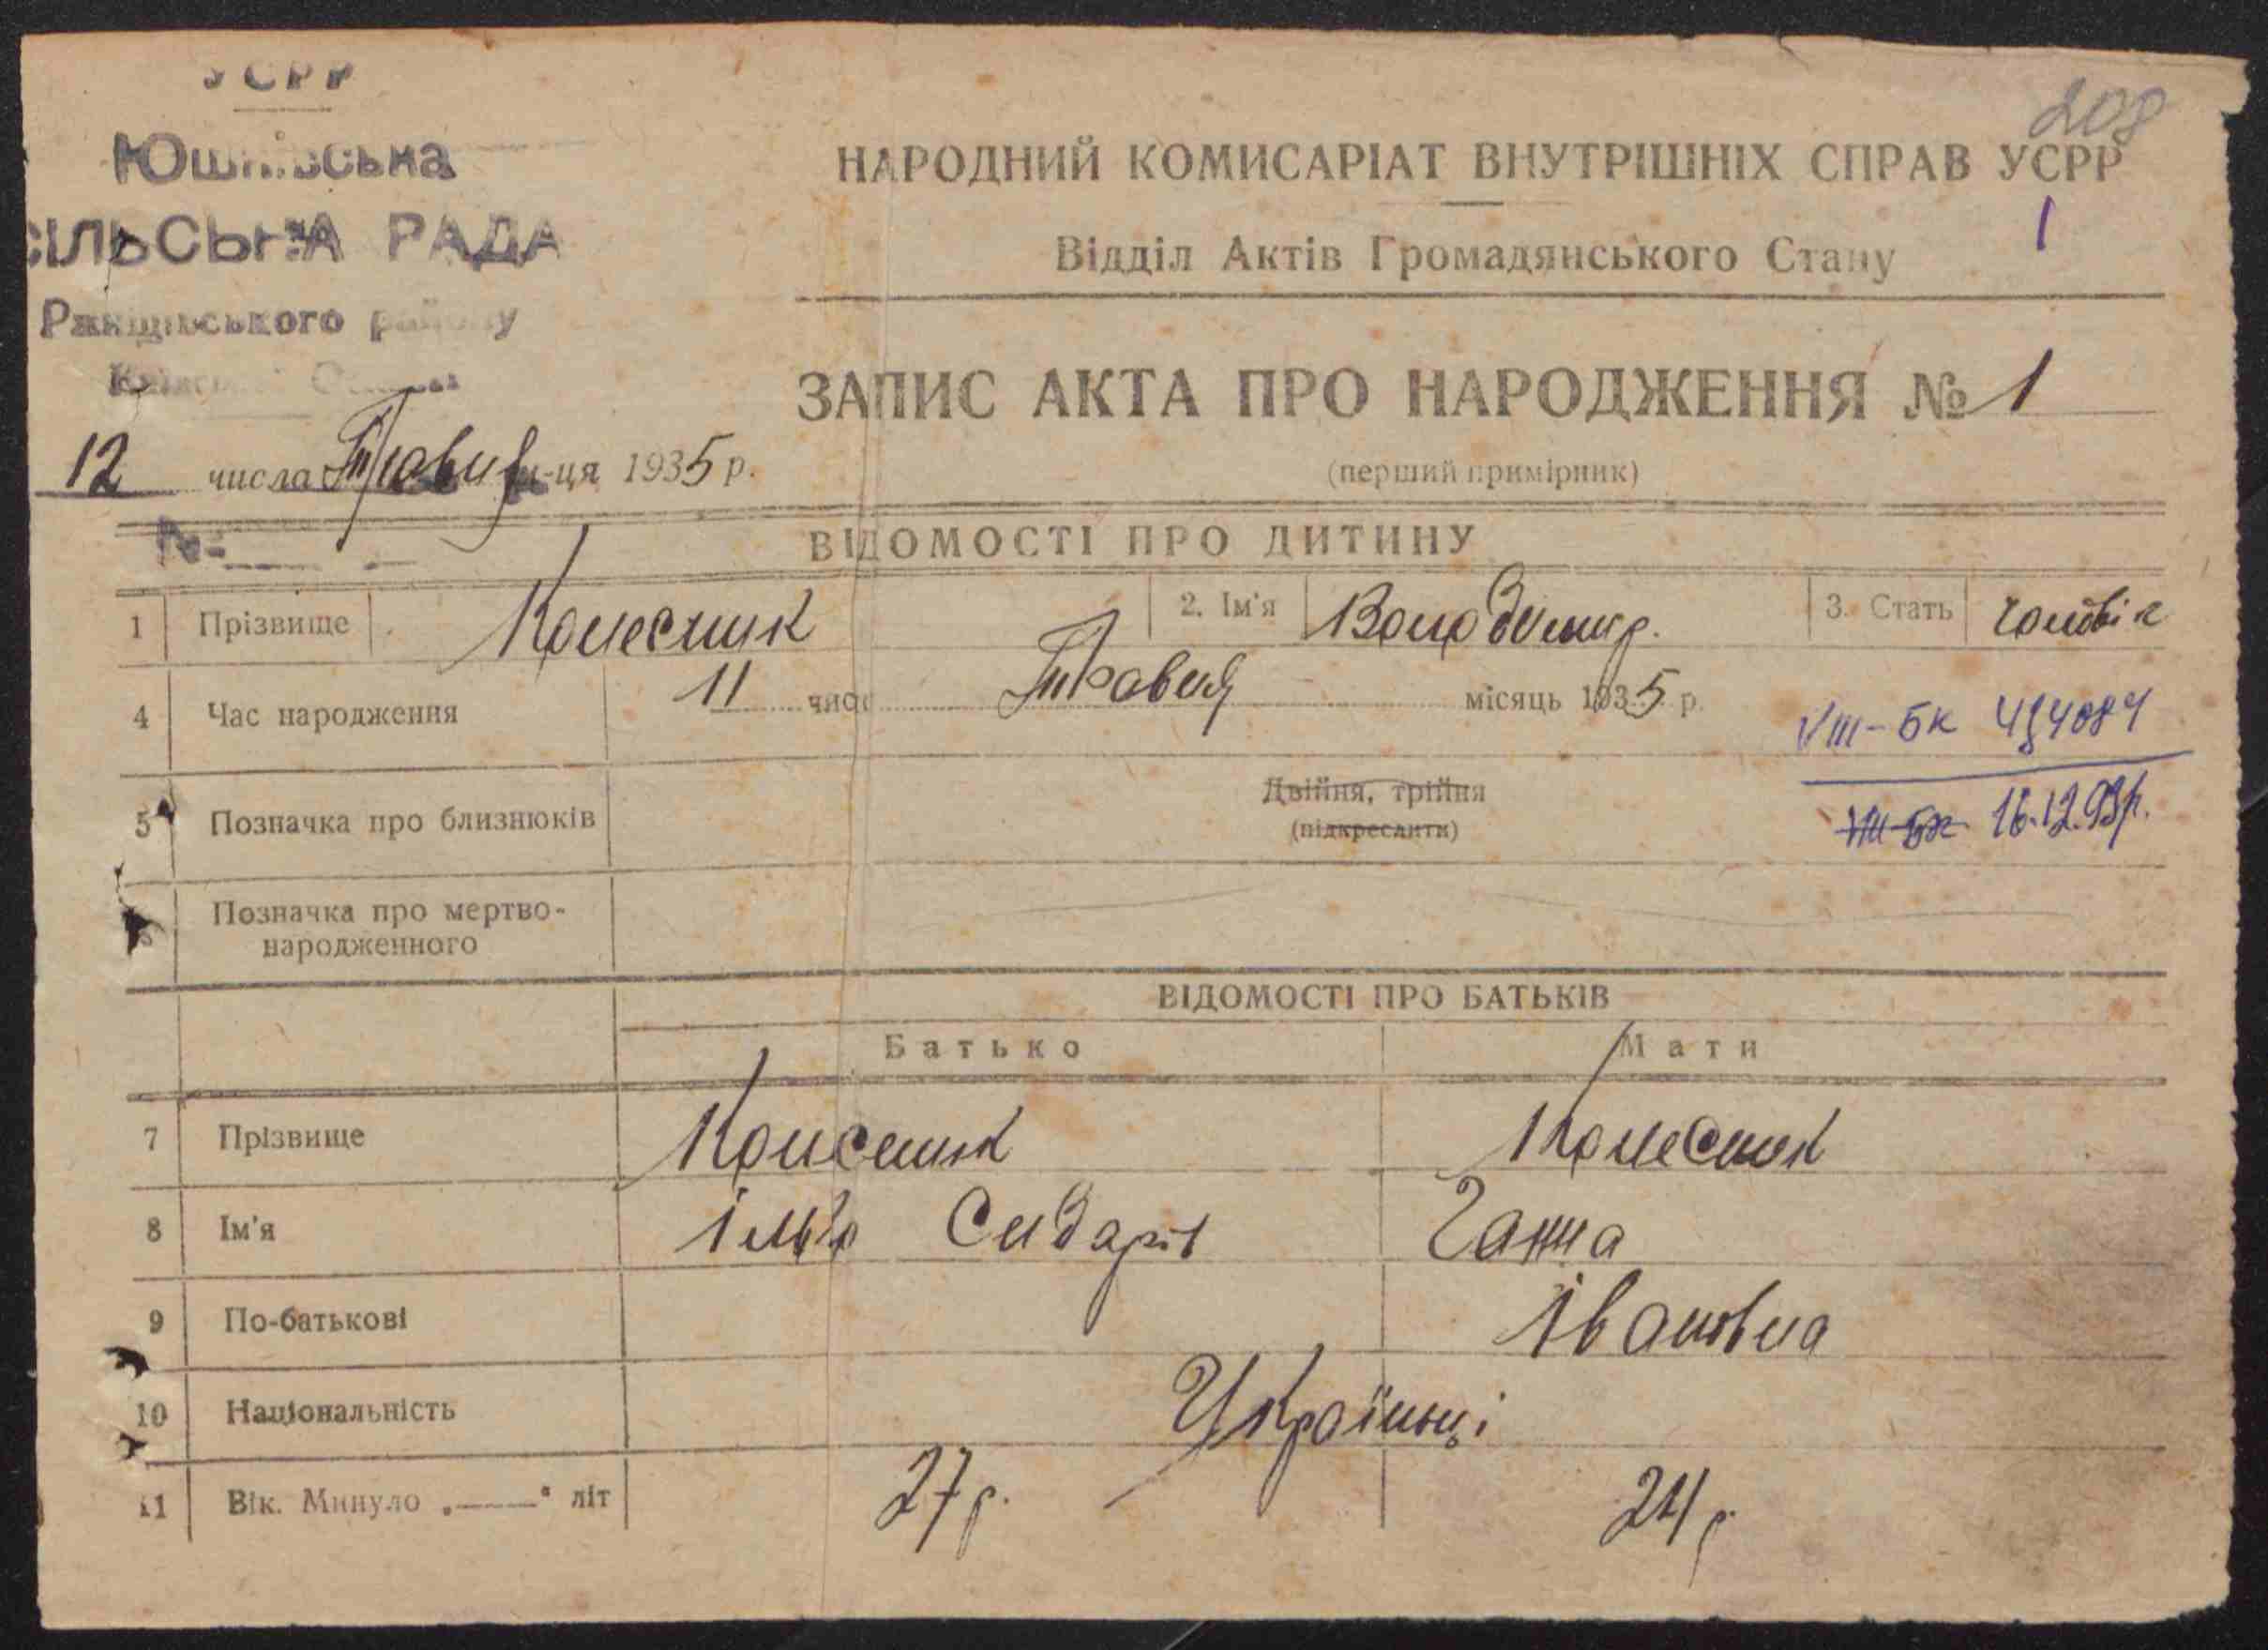 УСРР
208
Юшківська
НАРОДНИЙ КОМИСАРІАТ ВНУТРІШНІХ СПРАВ УСРР
1
СІЛЬСЬКА РАДА
Відділ Актів Громадянського Стану
Ржищівського району
Київської
ЗАПИС АКТА ПРО НАРОДЖЕННЯ № 1
12 числа Травня м-ця 1935 р.
(перший примірник)
№
ВІДОМОСТІ ПРО ДИТИНУ
1 Прізвище Колесник 2. Ім'я Володимир. 3. Стать чоловік
4 Час народження 11 число Травня місяць 1935 р.
VIII-БК
5 Позначка про близнюків Двійня, трійня
(підкреслити)
VIII-БК 16.12.93р.
6 Позначка про мертво-
народженного
ВІДОМОСТІ ПРО БАТЬКІВ
Батько Мати
7 Прізвище Колесник Колесник
8 Ім'я Ілько Сидарів Ганна
9 По-батькові Івановна
10 Національність Українці
11 Вік. Минуло „——“ літ 27 р. 24 р.